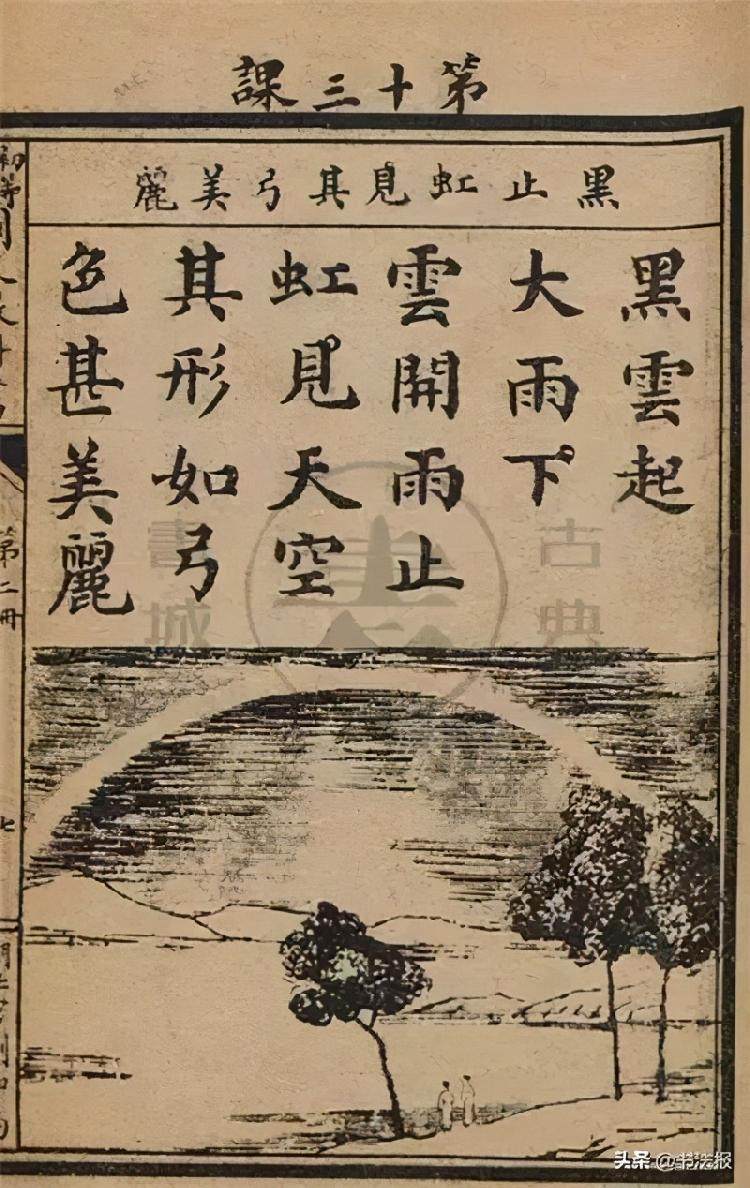 第十三課
黑止虹見其弓美麗
黑雲起
大雨下
雲開雨止
虹見天空
其形如弓
色甚美麗
第二冊
七
古典書城
头条 @书法报